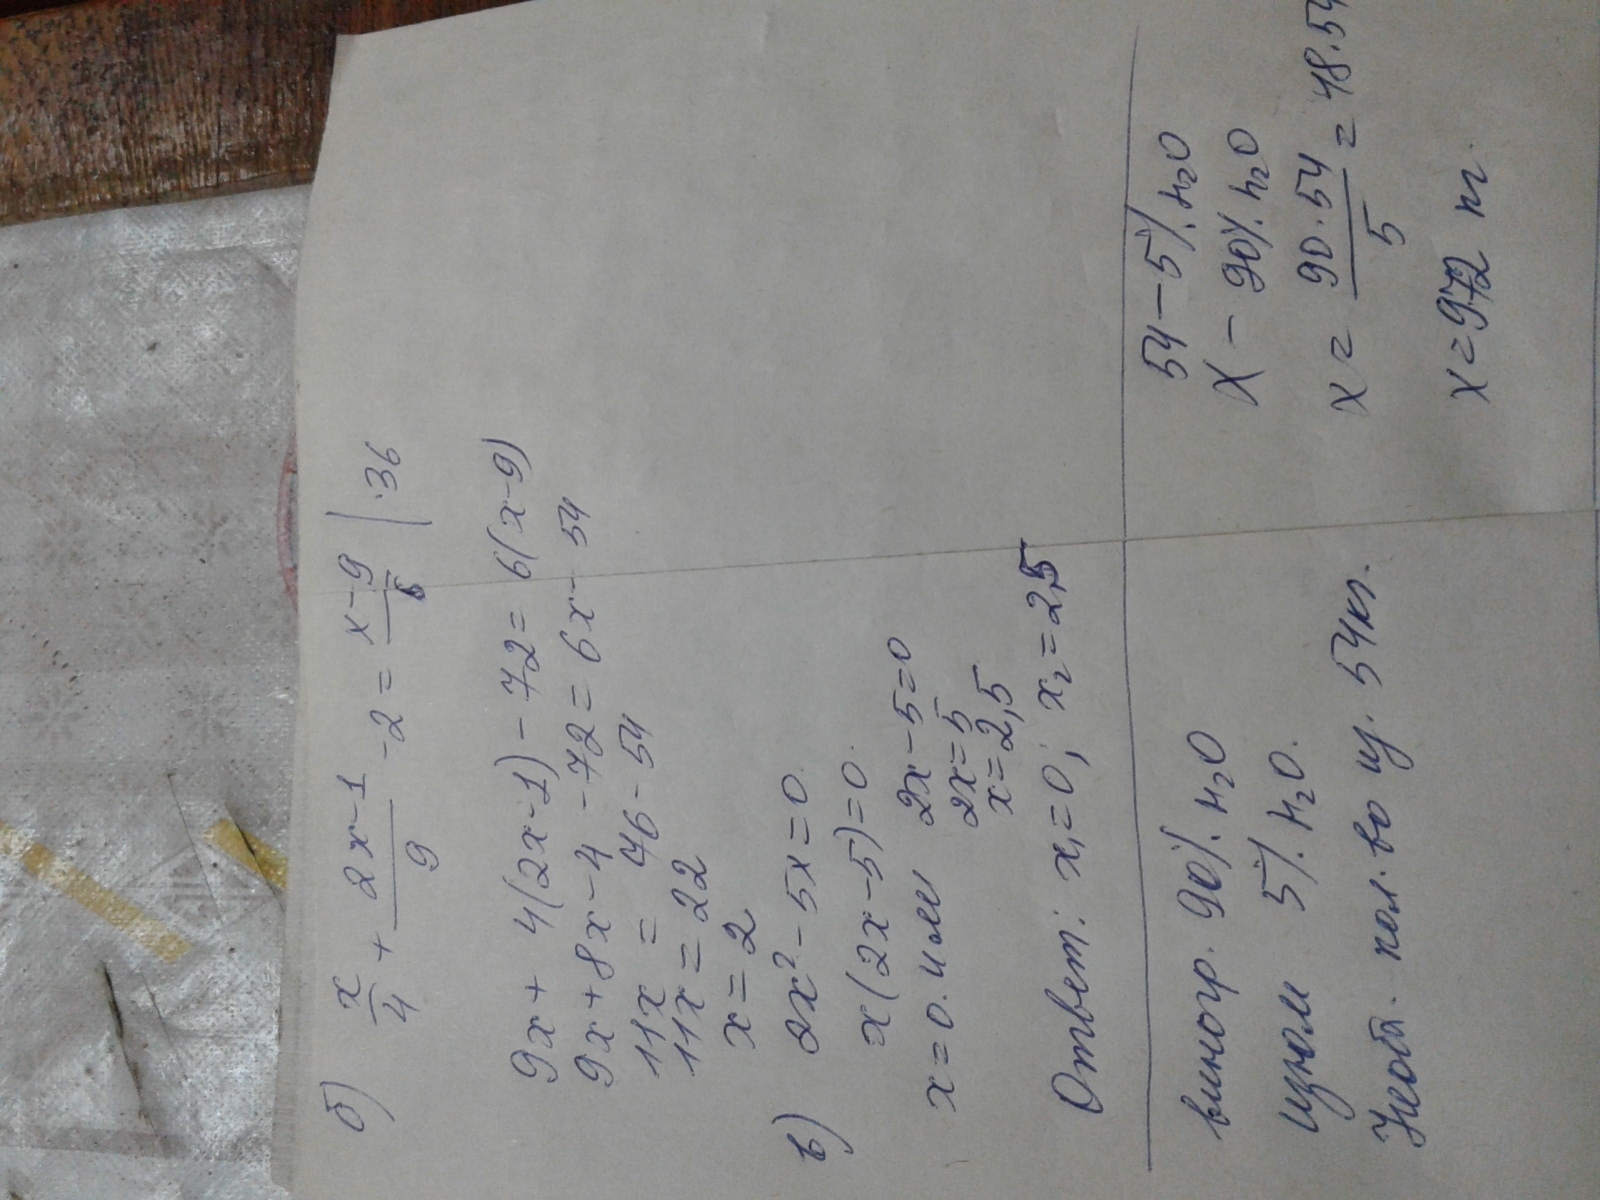 б) x/4 + 2x-1/9 -2 = x-9/6 | ·36
9x + 4(2x-1) - 72 = 6(x-9)
9x + 8x - 4 - 72 = 6x - 54
11x = 76 - 54
11x = 22
x = 2
в) 2x² - 5x = 0
x(2x-5) = 0
x = 0 или 2x - 5 = 0
2x = 5
x = 2,5
Ответ: x₁ = 0; x₂ = 2,5
виногр. 90% H₂O
изюм 5% H₂O
Необх. кол.во из. 54 кг.
54 - 5% H₂O
X - 90% H₂O
x = 90·54/5 = 48·54
x = 972 кг.